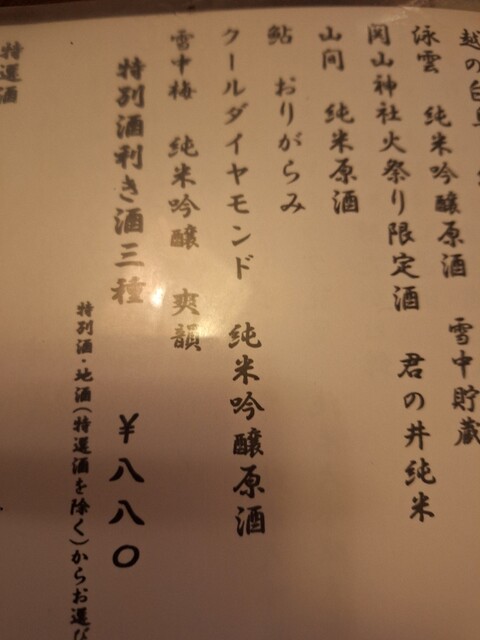 越の白鳥
泳雲 純米吟醸原酒 雪中貯蔵
関山神社火祭り限定酒 君の井純米
山間 純米原酒
鮎 おりがらみ
クールダイヤモンド 純米吟醸原酒
雪中梅 純米吟醸 爽韻
特別酒利き酒三種 ¥八八〇
特別酒・地酒(特選酒を除く)からお選び
特選酒